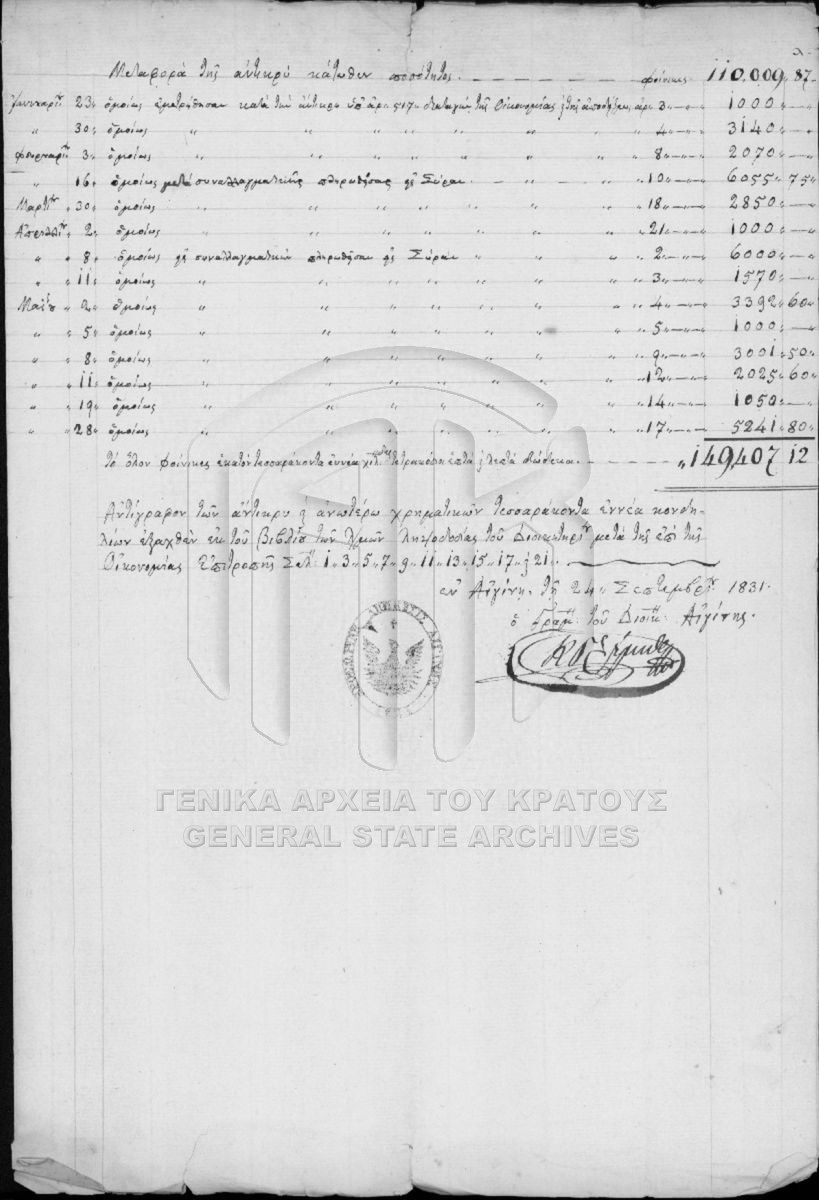 Μεταφορὰ τῆς ἀντικρὺ κάτωθεν ποσότητος. φοίνικες 110.009 „ 87
Ἰαννουαρίου 23 „ ὁμοίως ἐμετρήθησαν κατὰ τὴν ἀντικρὺ ὑπ' ἀρ: 517 διαταγὴν τῆς Οἰκονομίας 3 „ — „ 1000 „ — „
„ 30 „ ὁμοίως „ „ „ „ „ „ „ 4 „ — „ 3140 „ — „
Φευρουαρίου 3 „ ὁμοίως „ „ „ „ „ „ 8 „ — „ 2070 „ — „
„ 16 „ ὁμοίως μετὰ συναλλαγματικῆς πληρωθείσας εἰς Σύραν „ „ 10 „ — „ 6055 „ 75 „
Μαρτίου 30 „ ὁμοίως „ „ „ „ „ 18 „ — „ 2850 „ — „
Ἀπριλλίου 2 „ ὁμοίως „ „ „ „ „ 21 „ — „ 1000 „ — „
„ „ 8 „ ὁμοίως εἰς συναλλαγματικὴν πληρωθεῖσαν εἰς Σύραν „ „ „ 2 „ — „ 6000 „ — „
„ „ 11 „ ὁμοίως „ „ „ „ „ „ 3 „ — „ 1570 „ — „
Μαΐου „ 2 „ ὁμοίως „ „ „ „ „ „ 4 „ — „ 3392 „ 60 „
„ „ 5 „ ὁμοίως „ „ „ „ „ „ 5 „ — „ 1000 „ — „
„ „ 8 „ ὁμοίως „ „ „ „ „ „ 9 „ — „ 3001 „ 50 „
„ „ 11 „ ὁμοίως „ „ „ „ „ „ 12 „ — „ 2025 „ 60 „
„ „ 19 „ ὁμοίως „ „ „ „ „ „ 14 „ — „ 1050 „ — „
„ „ 28 „ ὁμοίως „ „ „ „ „ „ 17 „ — „ 5241 „ 80 „
Τὸ ὅλον φοίνικες ἑκατὸν τεσσαράκοντα ἐννέα χιλ: τετρακόσια ἑπτὰ καὶ λεπτὰ δώδεκα. „ 149,407 12
Ἀντίγραφον τῶν ἀντικρὺ καὶ ἀνωτέρω χρηματικῶν τεσσαράκοντα ἐννέα κονδυ-
λίων ἐξαχθὲν ἐκ τοῦ βιβλίου τῶν τοῦ Διοικητηρίου μετὰ τῆς ἐπὶ τῆς
Οἰκονομίας Ἐπιτροπῆς Σελ: 1 „ 3 „ 5 „ 7 „ 9 „ 11 „ 13 „ 15 „ 17 „ καὶ 21 „
ἐν Αἰγίνῃ. τῇ 24 „ Σεπτεμβρίου 1831.
ὁ Γραμ: τοῦ Διοικ: Αἰγίνης.
ΓΕΝΙΚΑ ΑΡΧΕΙΑ ΤΟΥ ΚΡΑΤΟΥΣ
GENERAL STATE ARCHIVES